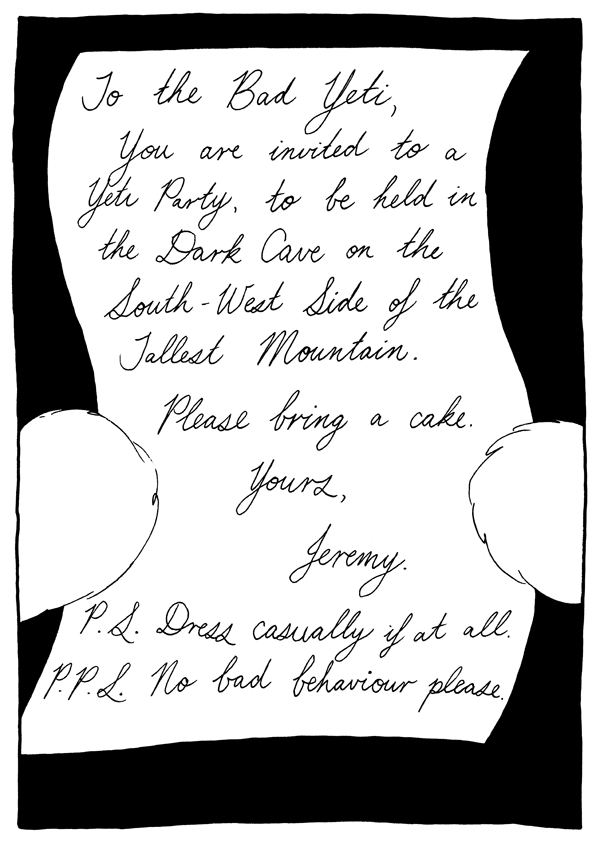 To the Bad Yeti,
You are invited to a
Yeti Party, to be held in
the Dark Cave on the
South-West Side of the
Tallest Mountain.
Please bring a cake.
Yours,
Jeremy.
P.S. Dress casually if at all.
P.P.S. No bad behaviour please.